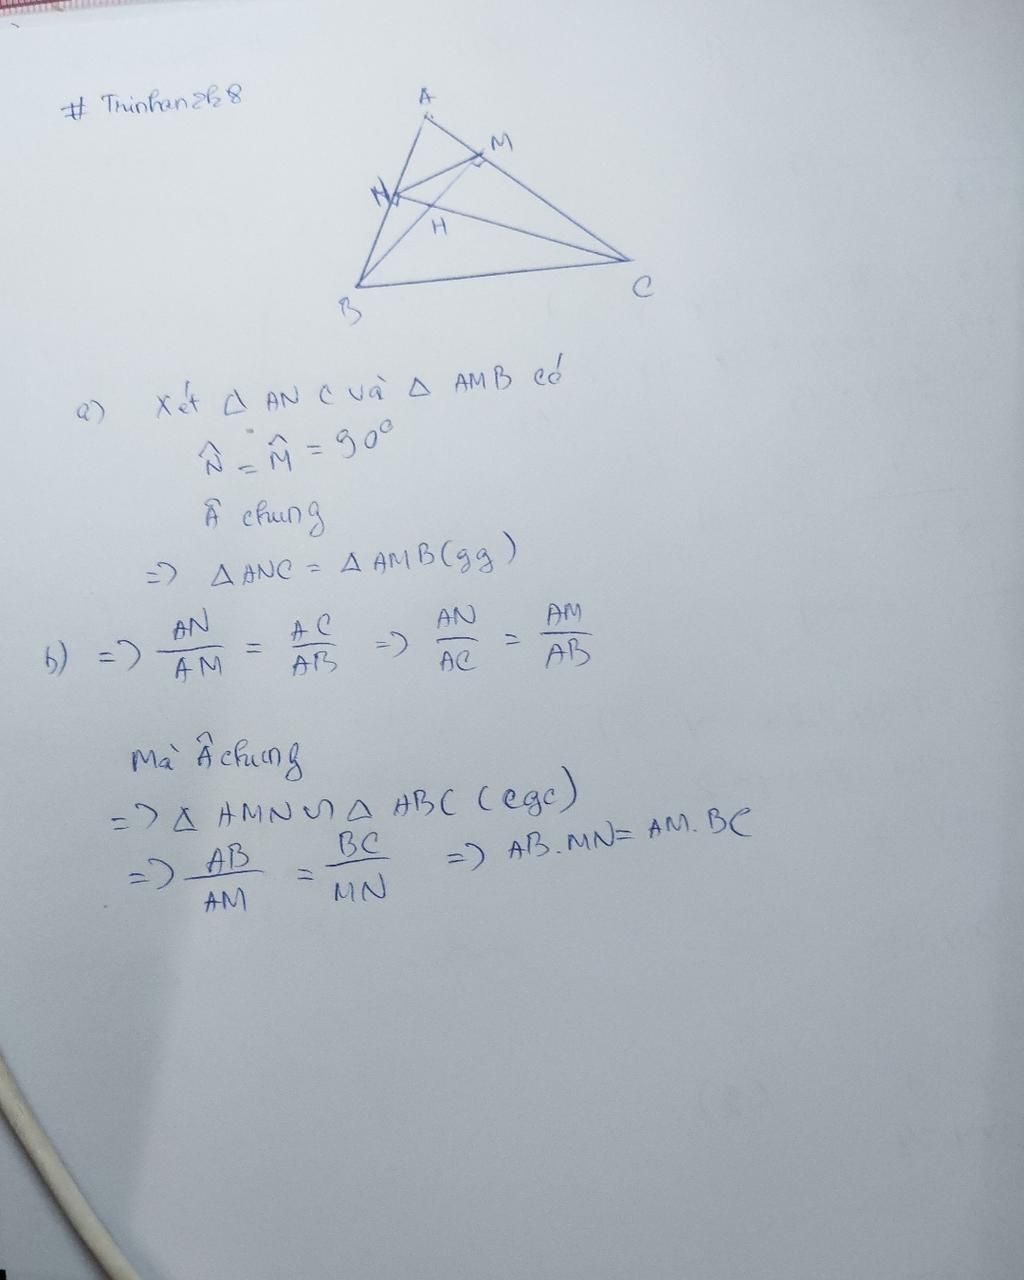 # Trinhan2k8
A
M
N
H
B
C
a) Xét Δ ANC và Δ AMB có
N̂ = M̂ = 90°
Â chung
=> Δ ANC = Δ AMB (gg)
b) => AN/AM = AC/AB => AN/AC = AM/AB
Mà Â chung
=> Δ AMN ∽ Δ ABC (cgc)
=> AB/AM = BC/MN => AB.MN = AM.BC